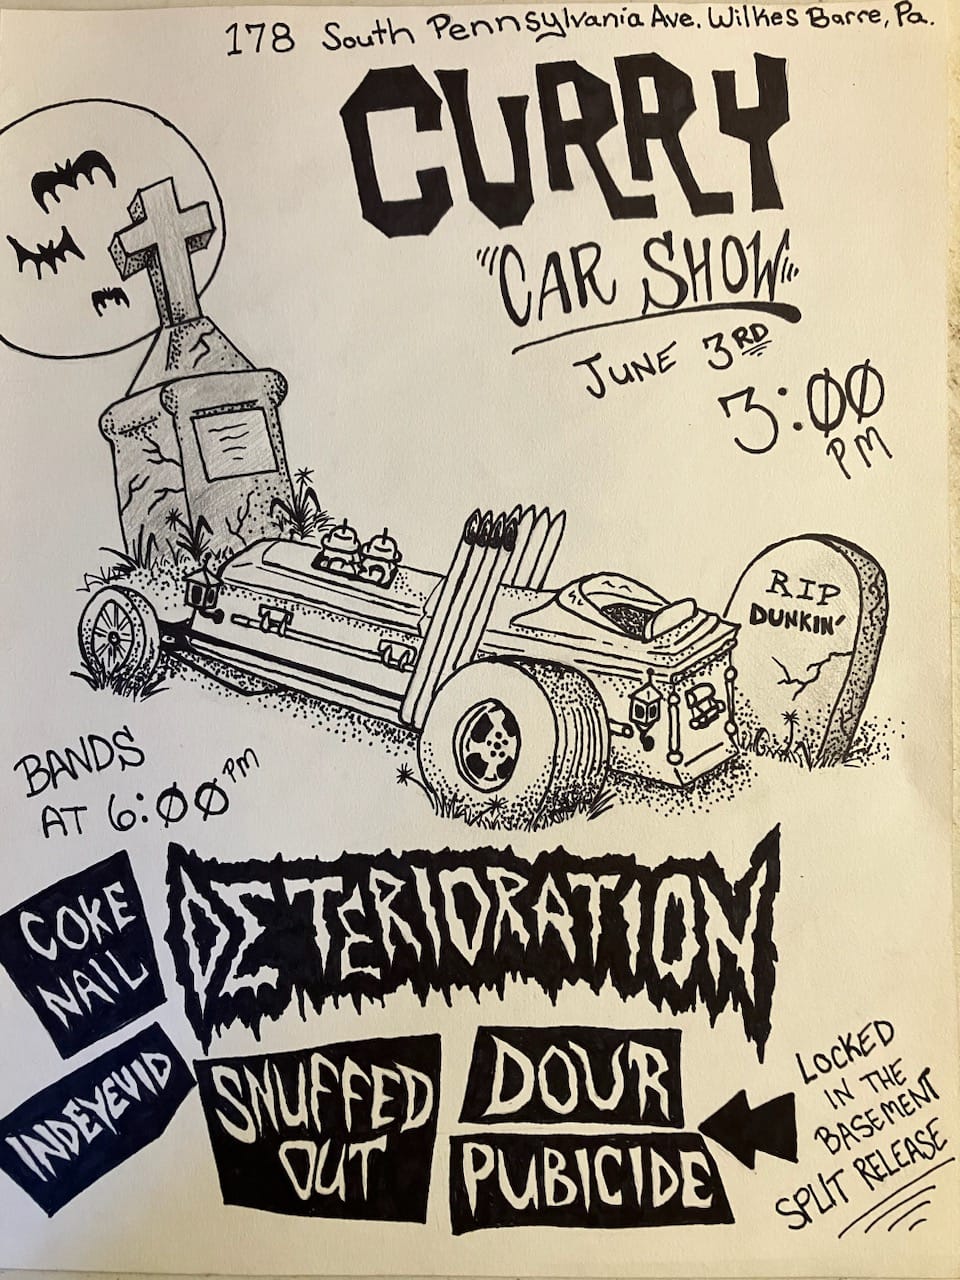 178 South Pennsylvania Ave. Wilkes Barre, Pa.
CURRY
"CAR SHOW"
JUNE 3RD
3:00
PM
RIP
DUNKIN'
BANDS
AT 6:00 PM
COKE
NAIL
DETERIORATION
INDEYEVID
SNUFFED
OUT
DOUR
PUBICIDE
LOCKED
IN THE
BASEMENT
SPLIT RELEASE